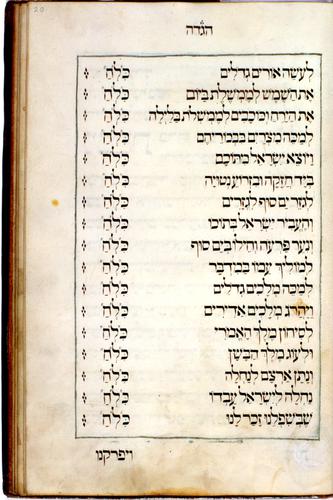 20
הגדה
לְעֹשֵׂה אוֹרִים גְּדֹלִים כִּלְחַ
אֶת הַשֶּׁמֶשׁ לְמֶמְשֶׁלֶת בַּיּוֹם כִּלְחַ
אֶת הַיָּרֵחַ וְכוֹכָבִים לְמֶמְשְׁלוֹת בַּלַּיְלָה כִּלְחַ
לְמַכֵּה מִצְרַיִם בִּבְכוֹרֵיהֶם כִּלְחַ
וַיּוֹצֵא יִשְׂרָאֵל מִתּוֹכָם כִּלְחַ
בְּיָד חֲזָקָה וּבִזְרוֹעַ נְטוּיָה כִּלְחַ
לְגֹזֵר יַם סוּף לִגְזָרִים כִּלְחַ
וְהֶעֱבִיר יִשְׂרָאֵל בְּתוֹכוֹ כִּלְחַ
וְנִעֵר פַּרְעֹה וְחֵילוֹ בְיַם סוּף כִּלְחַ
לְמוֹלִיךְ עַמּוֹ בַּמִּדְבָּר כִּלְחַ
לְמַכֵּה מְלָכִים גְּדֹלִים כִּלְחַ
וַיַּהֲרֹג מְלָכִים אַדִּירִים כִּלְחַ
לְסִיחוֹן מֶלֶךְ הָאֱמֹרִי כִּלְחַ
וּלְעוֹג מֶלֶךְ הַבָּשָׁן כִּלְחַ
וְנָתַן אַרְצָם לְנַחֲלָה כִּלְחַ
נַחֲלָה לְיִשְׂרָאֵל עַבְדּוֹ כִּלְחַ
שֶׁבְּשִׁפְלֵנוּ זָכַר לָנוּ כִּלְחַ
ויפרקנו